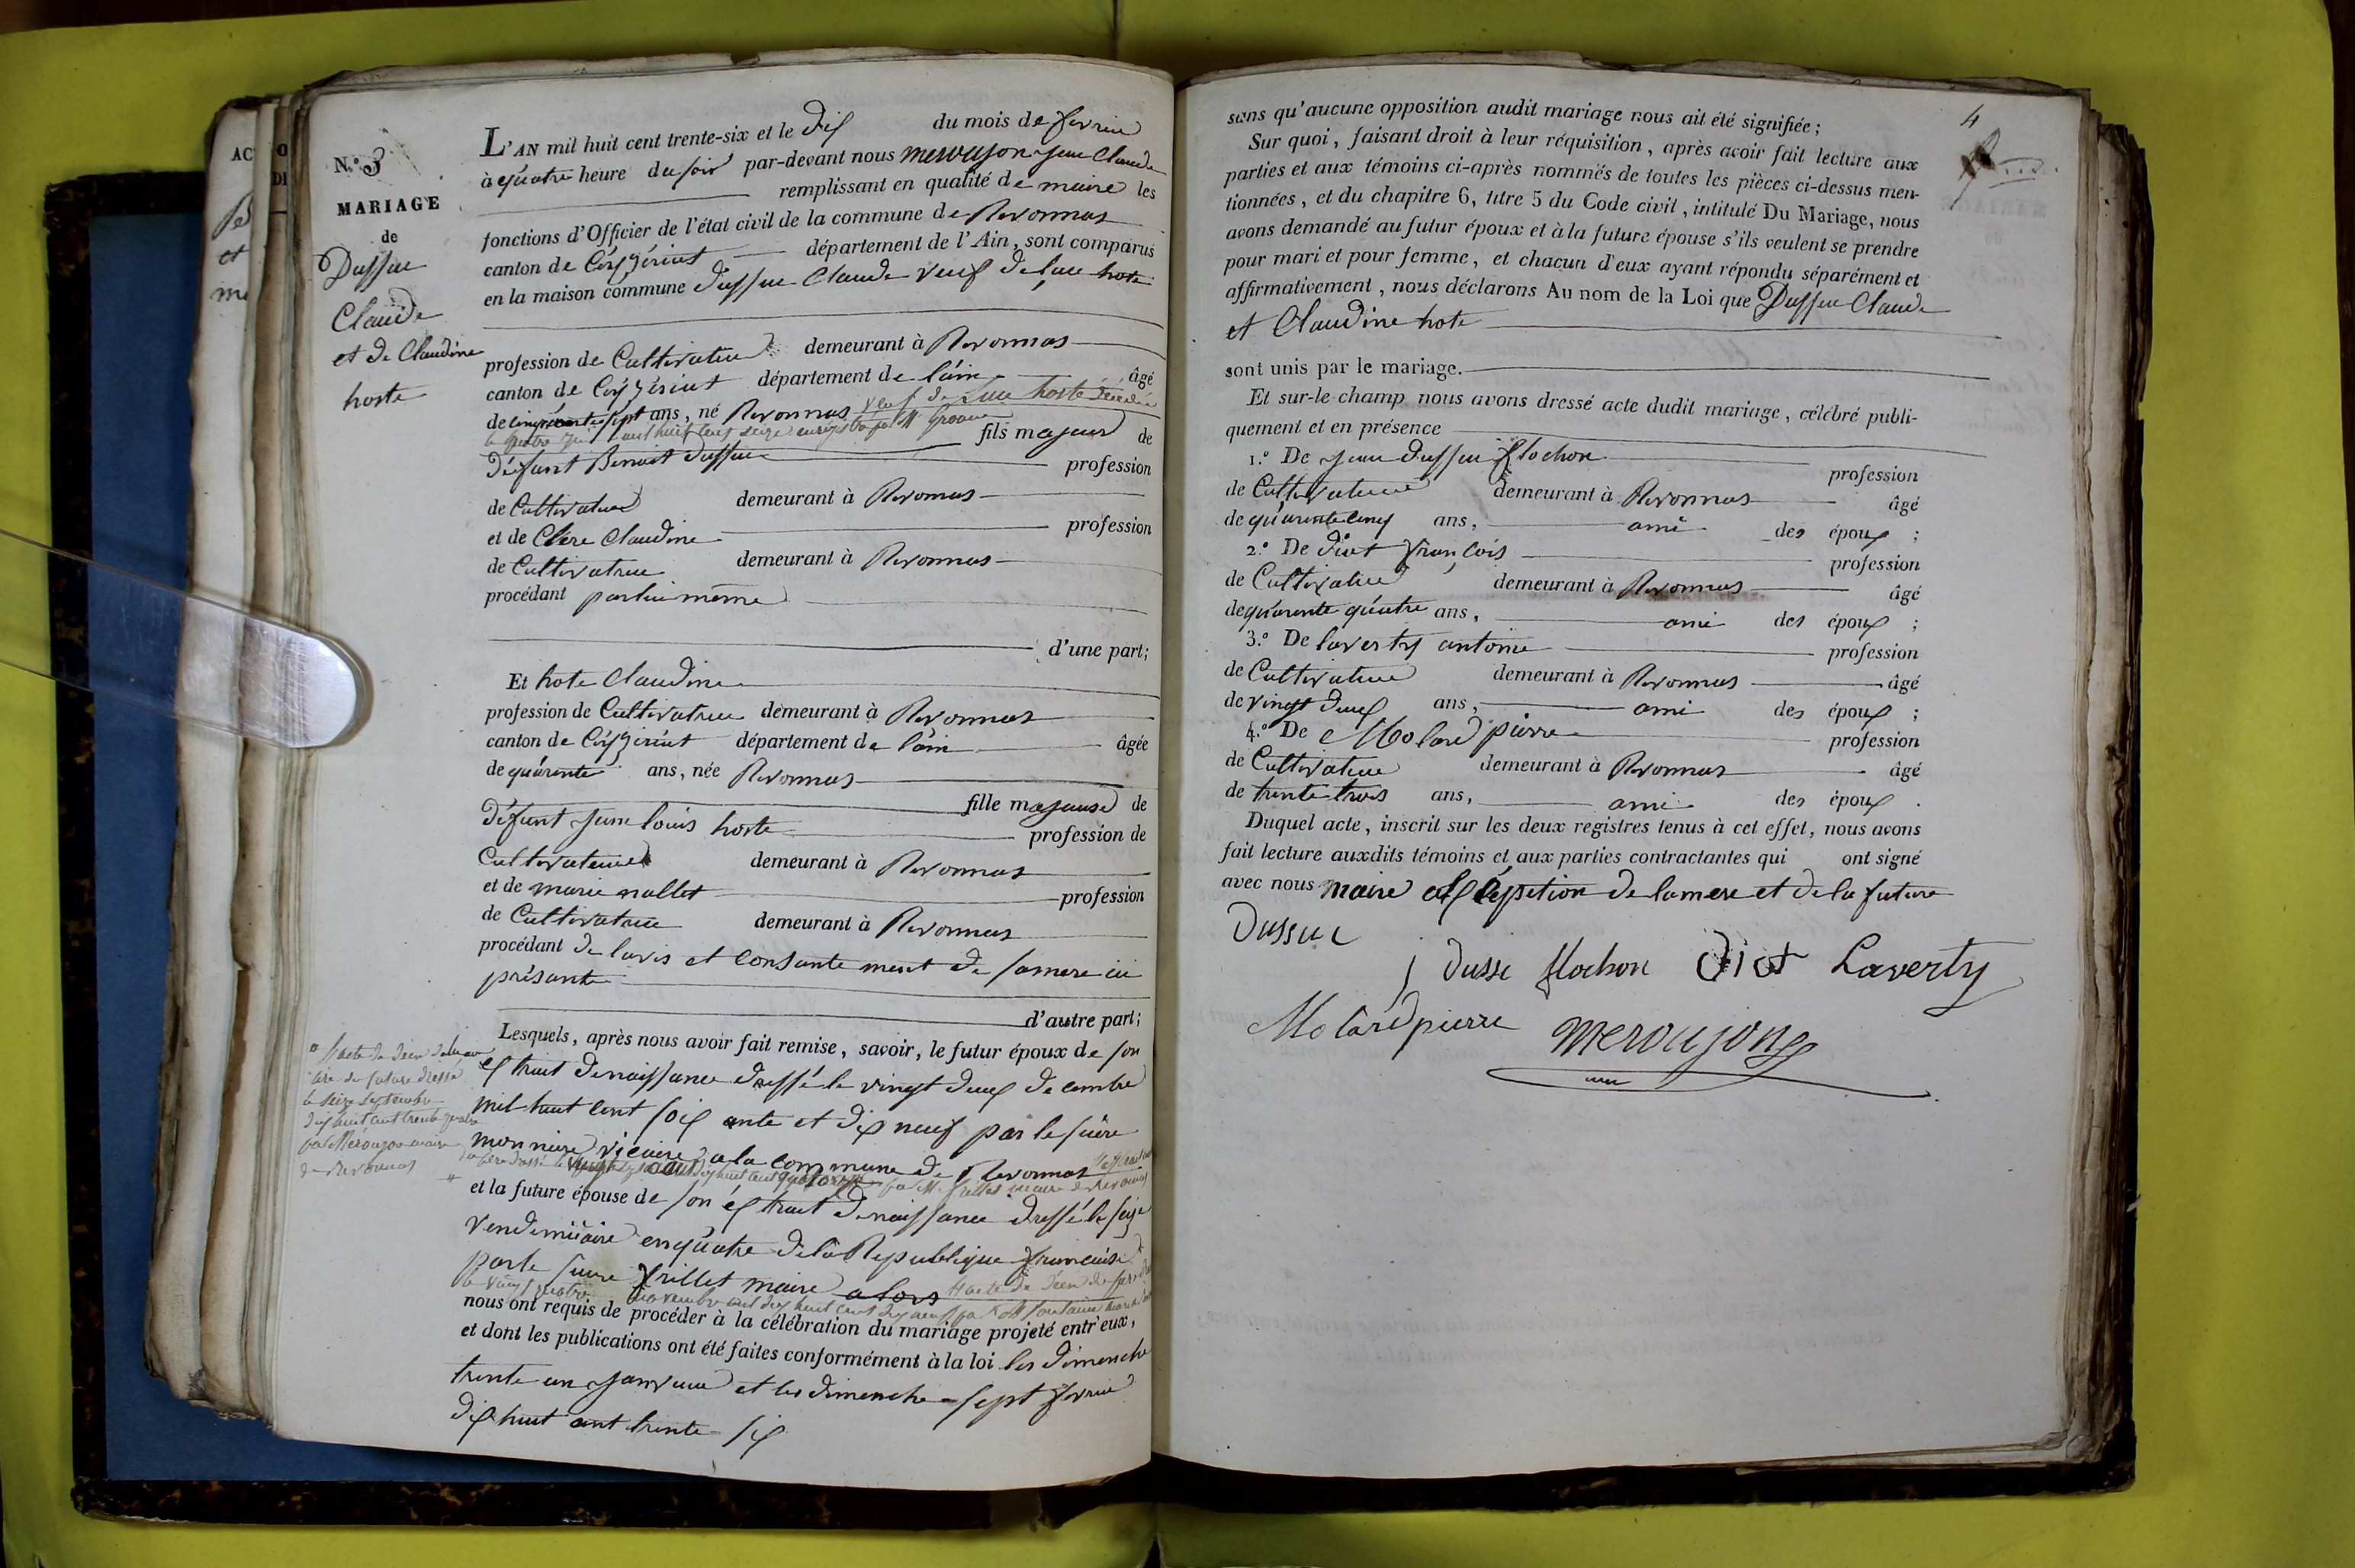 AC
O
DI
et
N.° 3
MARIAGE
de
Dussuc
Claude
et de Claudine
hoste
L'AN mil huit cent trente-six et le Dix du mois de fevrier
à quatre heure du soir par-devant nous meroujon jean Claude
remplissant en qualité de maire les
fonctions d'Officier de l'état civil de la commune de Revonnas
canton de Ceyzeriat département de l'Ain, sont comparus
en la maison commune dussuc Claude veuf de luce hote
profession de Cultivateur demeurant à Revonnas
canton de Ceyzeriat département de l'ain âgé
de cinquante sept ans, né Revonnas veuf de Luce hoste décédée
fils majeur de
défunt Benoit dussuc profession
de Cultivateur demeurant à Revonnas
et de Clere Claudine profession
de Cultivatrice demeurant à Revonnas
procédant par lui même
d'une part;
Et hote Claudine
profession de Cultivatrice demeurant à Revonnas
canton de Ceyzeriat département de l'ain âgée
de quarante ans, née Revonnas
fille majeure de
défunt jean louis hoste profession de
Cultivateur demeurant à Revonnas
et de marie nallet profession
de Cultivatrice demeurant à Revonnas
procédant de lavis et consante ment de samere ici
présante
d'autre part;
Lesquels, après nous avoir fait remise, savoir, le futur époux de son
extrait denaissance dressé le vingt deux decembre
mil huit cent soix ante et dix neuf par le suire
monnier vicaire a la commune de Revonnas
et la future épouse de son extrait denaissance dressé le seize
vendemiaire enquatre dela Republique francaise
parle suire frillet maire alors
nous ont requis de procéder à la célébration du mariage projeté entr'eux,
et dont les publications ont été faites conformément à la loi les dimenche
trente un janvier et les dimenche sept fevrier
dix huit cent trente six
le seize septembre
dix huit cent trente quatre
par Meroujon maire
de Revonnas
4
sans qu'aucune opposition audit mariage nous ait été signifiée;
Sur quoi, faisant droit à leur réquisition, après avoir fait lecture aux
parties et aux témoins ci-après nommés de toutes les pièces ci-dessus men-
tionnées, et du chapitre 6, titre 5 du Code civil, intitulé Du Mariage, nous
avons demandé au futur époux et à la future épouse s'ils veulent se prendre
pour mari et pour femme, et chacun d'eux ayant répondu séparément et
affirmativement, nous déclarons Au nom de la Loi que Dussuc Claude
et Claudine hote
sont unis par le mariage.
Et sur-le-champ nous avons dressé acte dudit mariage, célébré publi-
quement et en présence
1.° De jean dussuc flochon profession
de Cultivateur demeurant à Revonnas âgé
de quarente cinq ans, ami des époux ;
2.° De diot françois profession
de Cultivateur demeurant à Revonnas âgé
de quarente quatre ans, ami des époux ;
3.° De laverty antoine profession
de Cultivateur demeurant à Revonnas âgé
de vingt deux ans, ami des époux ;
4.° De Molard pierre profession
de Cultivateur demeurant à Revonnas âgé
de trente trois ans, ami des époux .
Duquel acte, inscrit sur les deux registres tenus à cet effet, nous avons
fait lecture auxdits témoins et aux parties contractantes qui ont signé
avec nous maire de lamere et de la future
Dussuc
j dusse flochon Diot Laverty
Molard pierre meroujon